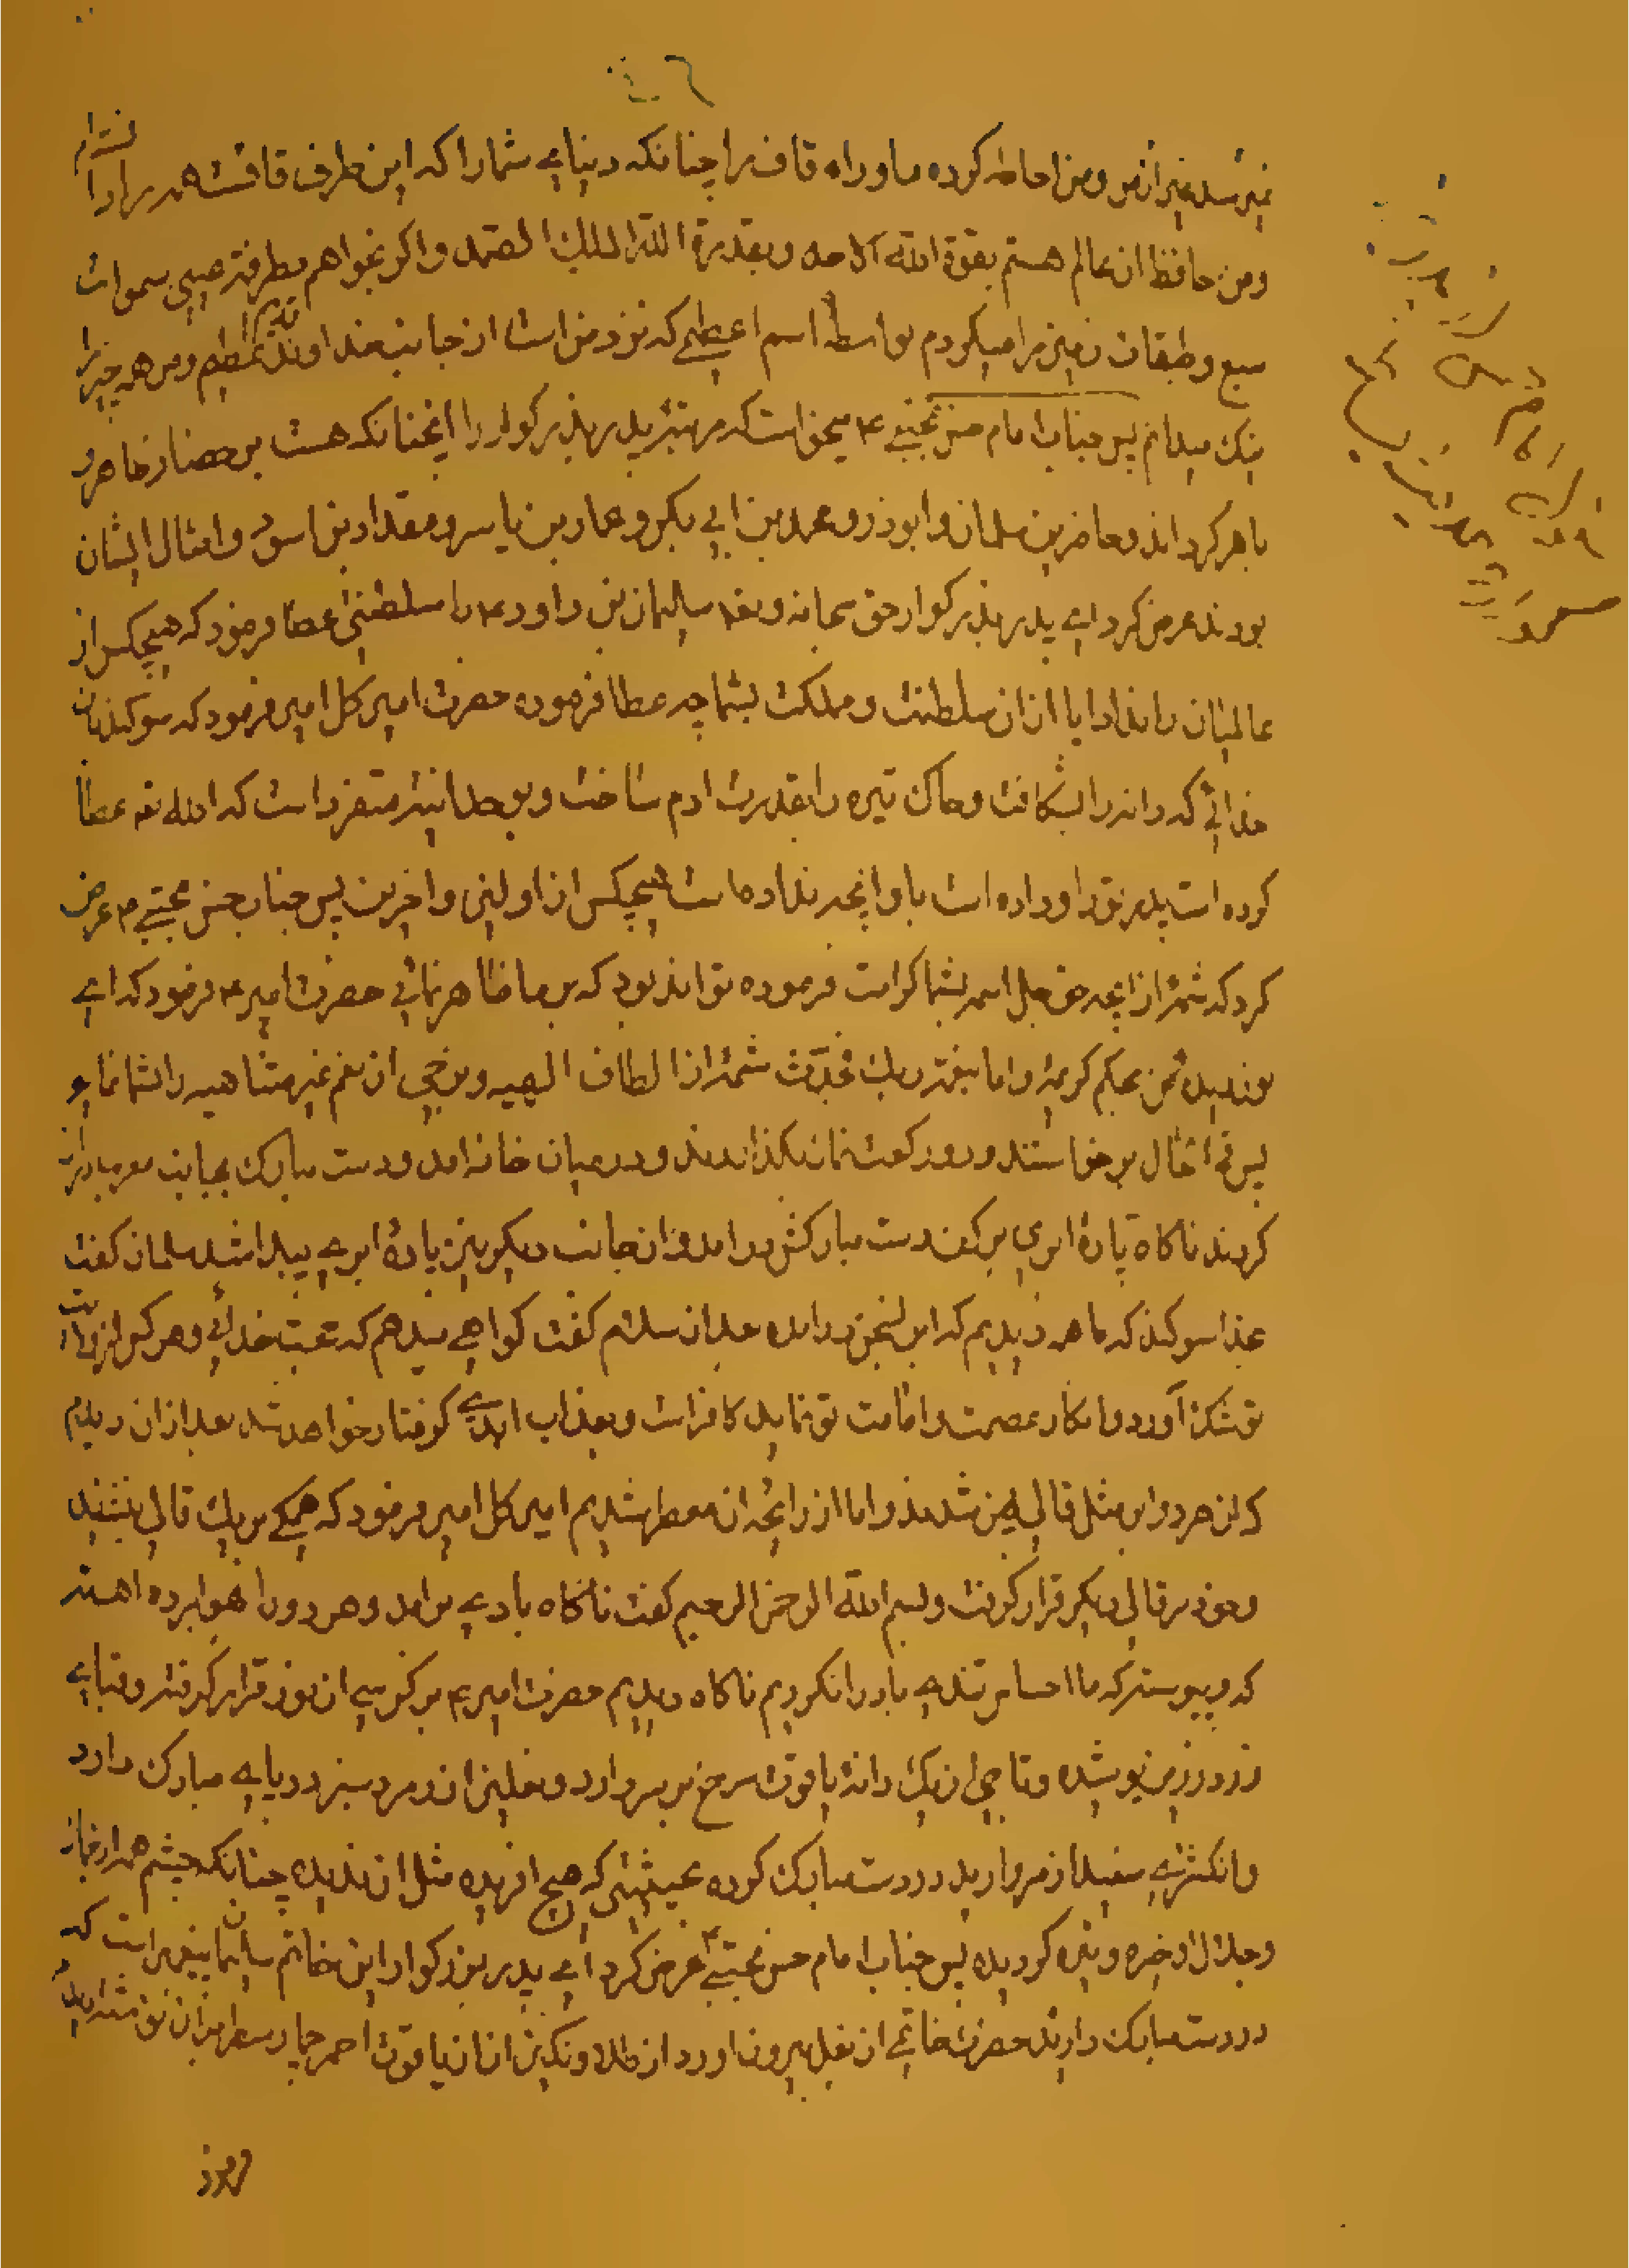 نمیرسد غیر از من و من احاطه کرده ماوراء قاف را چنانکه دنیای شما را که این طرف قافست همه را دارا
و من حافظ ان عالم هستم بقوة الله الاحد و بقدرة الله الملک الصمد واکر بخواهم بطرفة عینی سموات
سبع و طبقات زمین را میکردم بواسطه اسم اعظمی که نزد من است از جانب خداوند عظیم و من همه چیز را
نیک میدانم پس جناب امام حسن مجتبی ع بحق است که مرتبه پدر بزرکوار را انچنانکه هست بر حضار ظاهر و
باهر کرداند و حاضرین سلمان و ابوذر و محمد بن ابی بکر و عمار بن یاسر و مقداد بن اسود و امثال ایشان
بودند عرض کرد ای پدر بزرکوار حق سبحانه و تعه سلیمان بن داود ع را سلطنتی عطا فرمود که هیچکس از
عالمیان را نداد ایا از ان سلطنت و مملکت بشما چه عطا فرموده حضرت امیر کل امیر فرمود که سوکند بان
خدائی که دانه را بشکافت و خاک تیره را بقدرت ادم ساخت و بوحدانیت متفرد است که الله تعه عطا
کرده است پدر تو را و داده است باو انچه نداده است هیچکس از اولین و اخرین پس جناب حسن مجتبی ع عرض
کرد که شمهٔ از انچه حق جل اسمه بشما کرامت فرموده تواند بود که بر ما ظاهر نمائی حضرت امیر ع فرمود که ای
نور دیده من بحکم کریمهٔ و اما بنعمة ربک فحدث شمهٔ از الطاف الهیه و برخی از نعم غیر متناهیه را بشما نمایم
پس فی الحال برخاستند و دو رکعت نماز بکذاردند و در میان خانه امد و دست مبارک بجانب مغرب دراز
کردند ناکاه پارهٔ ابری بر کف دست مبارکش درامد و از جانب دیکر نیز پارهٔ ابری پیدا شد سلمان کفت
بخدا سوکند که ما همه دیدیم که ابر بسخن درامده بعد از سلام کفت کواهی میدهم که حجت خدائی و هر کس در ولایت
تو شک آورد و انکار عصمت و امامت تو نماید کافر است و بعذاب ابدی کرفتار خواهد شد بعد از ان دیدیم
که ان هر دو ابر مثل قالی پهن شدند و اما از رائحه ان معطر شدیم امیر کل امیر فرمود که همکی بر یک قالی بنشیند
و خود بر قالی دیکر قرار کرفت و بسم الله الرحمن الرحیم کفت ناکاه بادی برامد و هر دو را بهوا برده اهسته
که و پیوسته که ما احساس تندی باد را نکردیم ناکاه دیدیم حضرت امیر ع بر کرسی از نور قرار کرفته و قبای
زرد زرین پوشیده و تاجی از یک دانهٔ یاقوت سرخ بر سر دارد و نعلین از زمرد سبز در پای مبارک دارد
و انکشتری سفید از مروارید در دست مبارک کرده بحیثیتی که هیچ افریده مثل ان ندیده چنانکه چشم همه از
و جلال او خیره و تیره کردیده پس جناب امام حسن مجتبی ع عرض کرد ای پدر بزرکوار این خاتم سلیمان پیغمبر است که
در دست مبارک دارید حضرت خاتمی از بغل بیرون اورد از طلا و نکین از ان یاقوت احمر چهار سطر بران نوشته